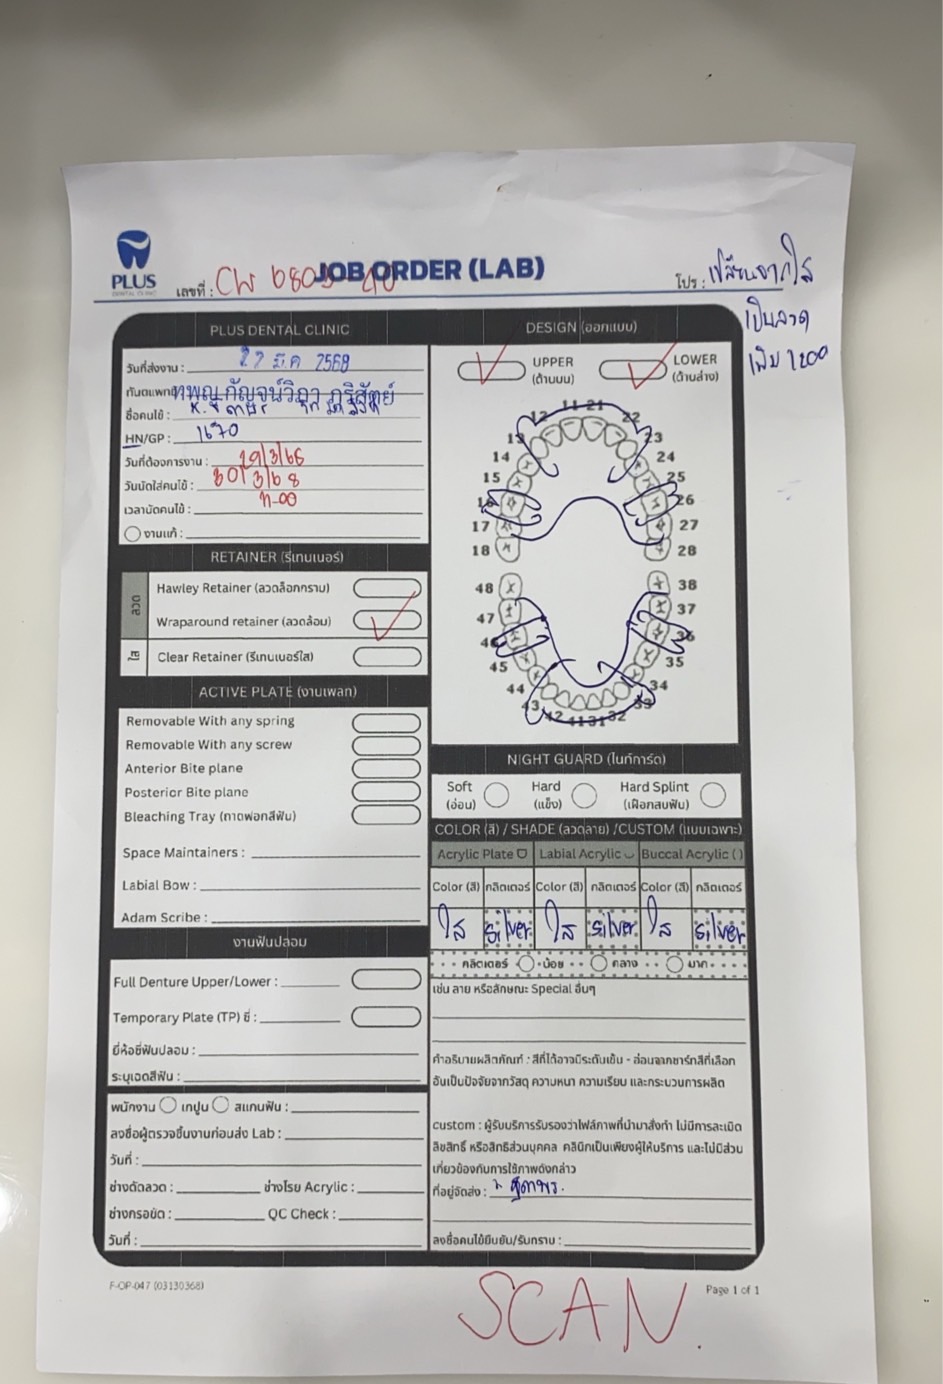 PLUS
DENTAL CLINIC
JOB ORDER (LAB)
เลขที่ : CW 6803
โปร : เปลี่ยนจากใส
เป็นลวด
เพิ่ม 1200
PLUS DENTAL CLINIC
วันที่ส่งงาน : 27 มี.ค 2568
ทันตแพทย์ ทพญ.กัญจน์วิภา ภูริสัตย์
ชื่อคนไข้ : K.
HN/GP : 1670
วันที่ต้องการงาน : 29/3/68
วันนัดใส่คนไข้ : 30/3/68
เวลานัดคนไข้ : 11-00
งานแก้ :
RETAINER (รีเทนเนอร์)
ลวด
Hawley Retainer (ลวดล็อกกราม)
Wraparound retainer (ลวดล้อม)
ใส
Clear Retainer (รีเทนเนอร์ใส)
ACTIVE PLATE (งานเพลท)
Removable With any spring
Removable With any screw
Anterior Bite plane
Posterior Bite plane
Bleaching Tray (ถาดฟอกสีฟัน)
Space Maintainers :
Labial Bow :
Adam Scribe :
งานฟันปลอม
Full Denture Upper/Lower :
Temporary Plate (TP) ซี่ :
ยี่ห้อซี่ฟันปลอม :
ระบุเฉดสีฟัน :
พนักงาน เทปูน สแกนฟัน :
ลงชื่อผู้ตรวจชิ้นงานก่อนส่ง Lab :
วันที่ :
ช่างดัดลวด : ช่างโรย Acrylic :
ช่างกรอขัด : QC Check :
วันที่ :
DESIGN (ออกแบบ)
UPPER
(ด้านบน)
LOWER
(ด้านล่าง)
11 21
12 22
13 23
14 24
15 25
16 26
17 27
18 28
48 38
47 37
46 36
45 35
44 34
43 33
42 41 31 32
NIGHT GUARD (ไนท์การ์ด)
Soft
(อ่อน)
Hard
(แข็ง)
Hard Splint
(เฝือกสบฟัน)
COLOR (สี) / SHADE (ลวดลาย) /CUSTOM (แบบเฉพาะ)
Acrylic Plate Labial Acrylic Buccal Acrylic ( )
Color (สี) กลิตเตอร์ Color (สี) กลิตเตอร์ Color (สี) กลิตเตอร์
ใส silver ใส silver ใส silver
กลิตเตอร์ น้อย กลาง มาก
เช่น ลาย หรือลักษณะ Special อื่นๆ
คำอธิบายผลิตภัณฑ์ : สีที่ได้อาจมีระดับเข้ม - อ่อนจากชาร์ทสีที่เลือก
อันเป็นปัจจัยจากวัสดุ ความหนา ความเรียบ และกระบวนการผลิต
custom : ผู้รับบริการรับรองว่าไฟล์ภาพที่นำมาสั่งทำ ไม่มีการละเมิด
ลิขสิทธิ์ หรือสิทธิส่วนบุคคล คลินิกเป็นเพียงผู้ให้บริการ และไม่มีส่วน
เกี่ยวข้องกับการใช้ภาพดังกล่าว
ที่อยู่จัดส่ง :
ลงชื่อคนไข้ยืนยัน/รับทราบ :
F-OP-047 (03130368)
SCAN.
Page 1 of 1